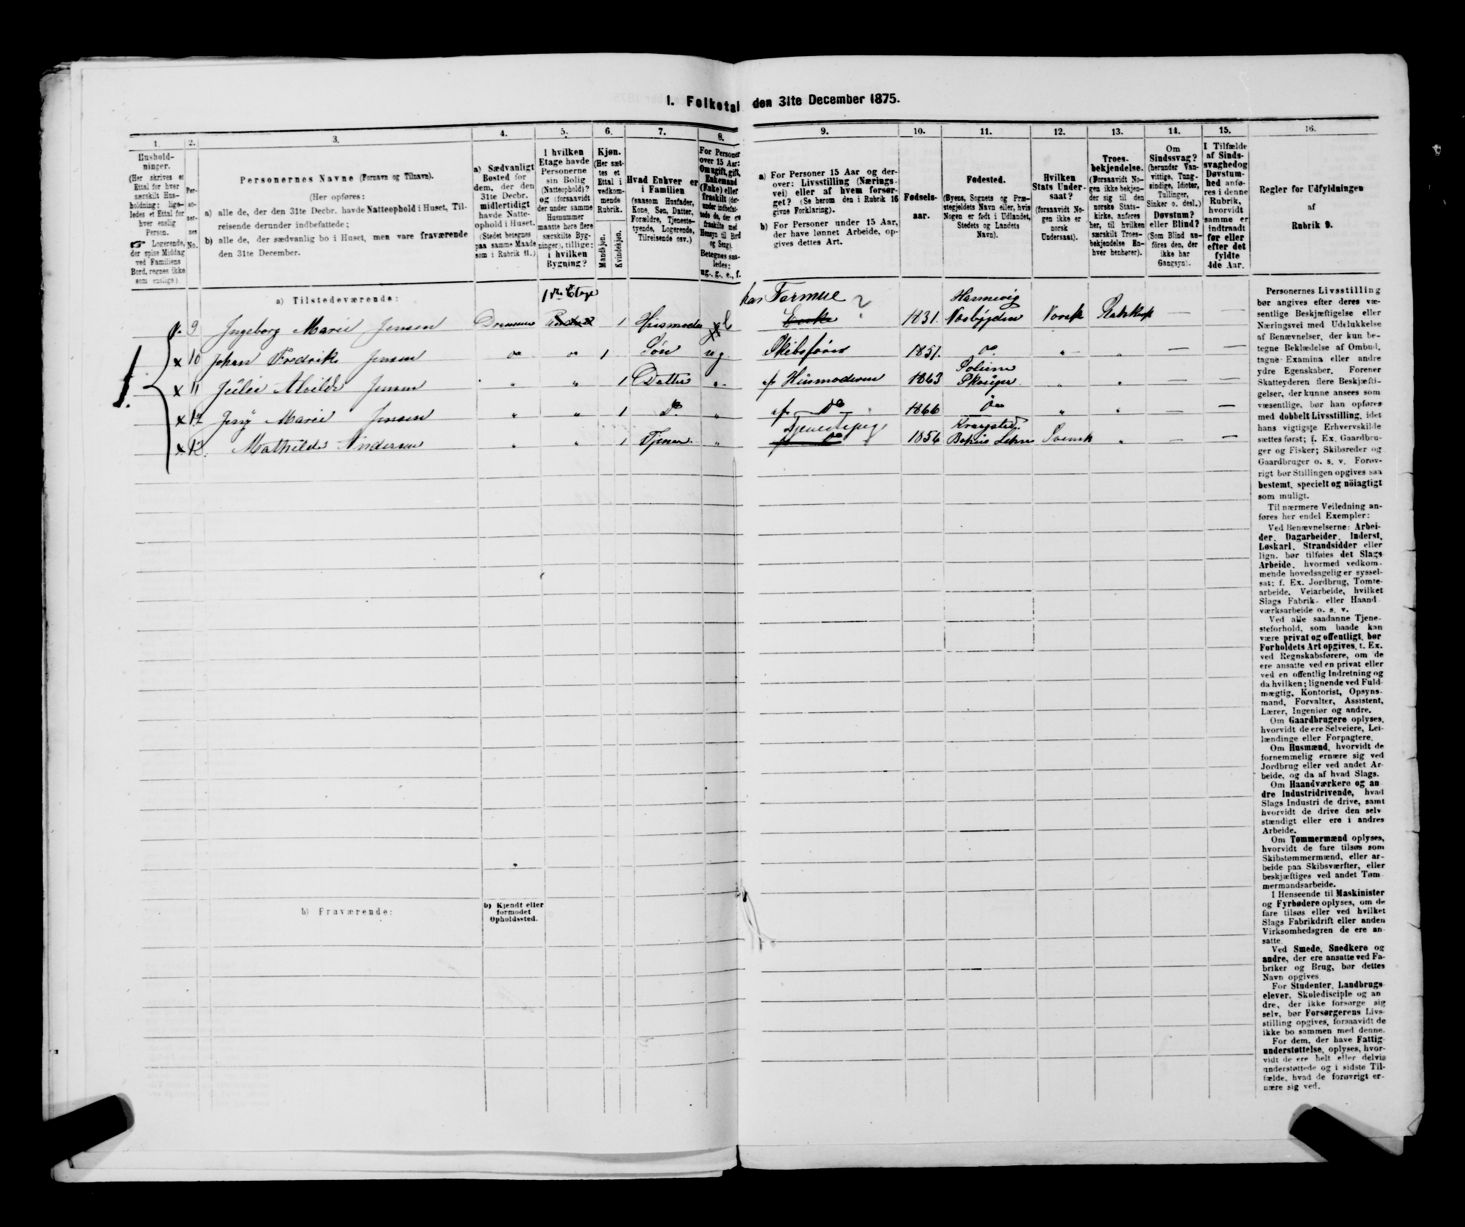 I. Folketal den 31te December 1875.
1. 2. 3. 4. 5. 6. 7. 8. 9. 10. 11. 12. 13. 14. 15. 16.
Hushold-
ninger.
(Her skrives et
Ettal for hver
særskilt Hus-
holdning; lige-
ledes et Ettal for
hver enslig
Person.
☞ Logerende,
der spise Middag
ved Familiens
Bord, regnes ikke
som enslige).
Per-
soner-
nes
No.
Personernes Navne (Fornavn og Tilnavn).
(Her opføres:
a) alle de, der den 31te Decbr. havde Natteophold i Huset, Til-
reisende derunder indbefattede;
b) alle de, der sædvanlig bo i Huset, men vare fraværende
den 31te December.
a) Sædvanligt
Bosted for
dem, der den
31te Decbr.
midlertidigt
havde Natte-
ophold i Huset.
(Stedet betegnes
paa samme Maade
som i Rubrik 11.)
I hvilken
Etage havde
Personerne
sin Bolig
(Natteophold)?
og (forsaavidt
der under samme
Husnummer
maatte høre flere
særskilte Byg-
ninger), tillige:
i hvilken
Bygning?
Kjøn.
(Her sæt-
tes et
Ettal i
vedkom-
mende
Rubrik.
Mandkjøn.
Kvindekjøn.
Hvad Enhver er
i Familien
(saasom Husfader,
Kone, Søn, Datter,
Forældre, Tjeneste-
tyende, Logerende,
Tilreisende osv.)
For Personer
over 15 Aar:
Om ugift, gift,
Enkemand
(Enke) eller
fraskilt
Betegnes saa-
ledes:
ug., g., e., f.
a) For Personer 15 Aar og der-
over: Livsstilling (Nærings-
vei) eller af hvem forsør-
get? (Se herom den i Rubrik 16
givne Forklaring).
b) For Personer under 15 Aar,
der have lønnet Arbeide, op-
gives dettes Art.
Fødsels-
aar.
Fødested.
(Byens, Sognets og Præ-
stegjeldets Navn eller, hvis
Nogen er født i Udlandet,
Stedets og Landets
Navn).
Hvilken
Stats Under-
saat?
(forsaavidt No-
gen ikke er
norsk
Undersaat).
Troes-
bekjendelse.
(Forsaavidt No-
gen ikke bekjen-
der sig til den
norske Stats-
kirke, anføres
her, til hvilken
særskilt Troes-
bekjendelse En-
hver henhører).
Om
Sindssvag?
(herunder Van-
vittige, Tung-
sindige, Idioter,
Tullinger,
Sinker o. desl.)
Døvstum?
eller Blind?
(Som Blind an-
føres den, der
ikke har
Gangsyn).
I Tilfælde
af Sinds-
svaghed og
Døvstum-
hed anfø-
res i denne
Rubrik,
hvorvidt
samme er
indtraadt
før eller
efter det
fyldte
4de Aar.
Regler for Udfyldningen
af
Rubrik 9.
a) Tilstedeværende:
1ste Etage
9 Ingeborg Marie Jensen Drammen 1 Husmoder e har Formue ? 1831 Norsk Statskirk — —
10 Johan Fredrik Jensen do " 1 Søn ug Skibsfører 1851 do " " — —
11 Alvilde Jensen " " 1 Datter " af Husmoderen 1863 " " — —
12 Jeny Marie Jensen " " 1 Do " af Do 1866 " " — —
13 Mathilde Andersen " " 1 Tjener " Tjenestepige 1856 Svensk " — —
b) Fraværende:
b) Kjendt eller
formodet
Opholdssted.
Personernes Livsstilling
bør angives efter deres væ-
sentlige Beskjæftigelse eller
Næringsvei med Udelukkelse
af Benævnelser, der kun be-
tegne Beklædelse af Ombud,
tagne Examina eller andre
ydre Egenskaber. Forener
Skatteyderen flere Beskjæfti-
gelser, der kunne ansees som
væsentlige, bør han opføres
med dobbelt Livsstilling, idet
hans vigtigste Erhvervskilde
sættes først; f. Ex. Gaardbru-
ger og Fisker; Skibsreder og
Gaardbruger o. s. v. Forøv-
rigt bør Stillingen opgives saa
bestemt, specielt og nøiagtigt
som muligt.
Til nærmere Veiledning an-
føres her endel Exempler:
Ved Benævnelserne: Arbei-
der, Dagarbeider, Inderst,
Løskarl, Strandsidder eller
lign. bør tilføies det Slags
Arbeide, hvormed vedkom-
mende hovedsagelig er syssel-
sat; f. Ex. Jordbrug, Tomte-
arbeide, Veiarbeide, hvilket
Slags Fabrik- eller Haand-
værksarbeide o. s. v.
Ved alle saadanne Tjene-
steforhold, som baade kan
være privat og offentligt, bør
Forholdets Art opgives, f. Ex.
ved Regnskabsførere, om de
ere ansatte ved en privat eller
ved en offentlig Indretning og
da hvilken; lignende ved Fuld-
mægtig, Kontorist, Opsyns-
mand, Forvalter, Assistent,
Lærer, Ingeniør og andre.
Om Gaardbrugere oplyses,
hvorvidt de ere Selveiere, Lei-
lændinge eller Forpagtere.
Om Husmænd, hvorvidt de
fornemmelig ernære sig ved
Jordbrug eller ved andet Ar-
beide, og da af hvad Slags.
Om Haandværkere og an-
dre Industridrivende, hvad
Slags Industri de drive, samt
hvorvidt de drive den selv-
stændigt eller ere i andres
Arbeide.
Om Tømmermænd oplyses,
hvorvidt de fare tilsøs som
Skibstømmermænd, eller ar-
beide paa Skibsværfter, eller
beskjæftiges ved andet Tøm-
mermandsarbeide.
I Henseende til Maskinister
og Fyrbødere oplyses, om de
fare tilsøs eller ved hvilket
Slags Fabrikdrift eller anden
Virksomhedsgren de ere an-
satte.
Ved Smede, Snedkere og
andre, der ere ansatte ved Fa-
briker og Brug, bør dettes
Navn opgives.
For Studenter, Landbrugs-
elever, Skoledisciple og an-
dre, der ikke forsørge sig
selv, bør Forsørgerens Livs-
stilling opgives, forsaavidt de
ikke bo sammen med denne.
For dem, der have Fattig-
understøttelse, oplyses, hvor-
vidt de ere helt eller delvis
understøttede og i sidste Til-
fælde, hvad de forøvrigt er-
nære sig ved.